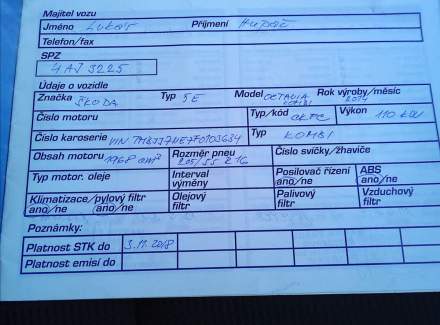 Majitel vozu
Jméno Lukáš Příjmení
Telefon/fax
SPZ
4AJ 3225
Údaje o vozidle
Značka ŠKODA Typ 5E Model OCTAVIA KOMBI Rok výroby/měsíc 2014
Číslo motoru Typ/kód CKFC Výkon 110 kW
Číslo karoserie VIN Typ KOMBI
Obsah motoru 1968 cm³ Rozměr pneu 205/55 R16 Číslo svíčky/žhaviče
Typ motor. oleje Interval výměny Posilovač řízení ano/ne ABS ano/ne
Klimatizace/pylový filtr ano/ne ano/ne Olejový filtr Palivový filtr Vzduchový filtr
Poznámky:
Platnost STK do 3.11.2018
Platnost emisí do